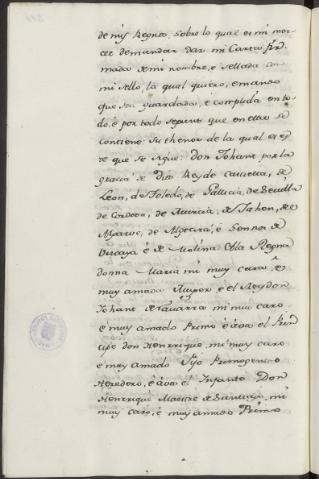 de mis Regnos, sobre lo qual es mi mer-
ced mandar dar mi Carta fir-
mada de mi nombre, e sellada con
mi sello, la qual quiero, e mando
que sea guardada, e complida en to-
do, é por todo segunt que en ella se
contiene. Su thenor de la qual es es-
te que se sigue: Don Johan por la
gracia de Dios Rey de Castiella, de
Leon, de Toledo, de Gallicia, de Sevilla
de Cordova, de Murcia, de Jahen, del
Algarve, de Algecira, é Sennor de
Vizcaya é de Molina. A la Reyna
donna Maria mi muy cara, é
muy amada Muger é el Rey don
Johan de Navarra mi muy caro
é muy amado Primo é á vos el Prin-
cipe don Henrrique, mi muy caro
e muy amado Fijo Primogenito
Heredero, é á vos el Infante Don
Henrrique Maestre de Santiago, mi
muy caro, é muy amado Primo